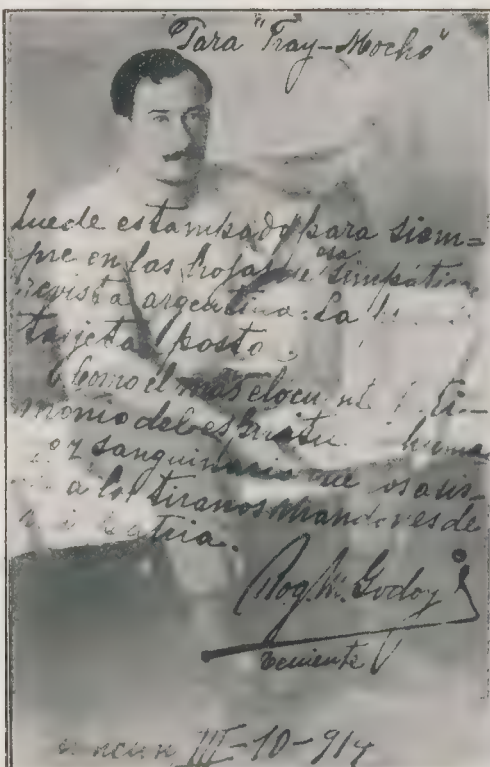 Para "Fray-Mocho"
Quede estampado para siem=
pre en las hojas de esa simpática
revista argentina: La
tarjeta posta
Como el mas elocu nt ti-
monio del espiritu huma
o y sanguinario que
a los tiranos mandones de
atria.
Rog. M. Godoy
Teniente
III-10-914